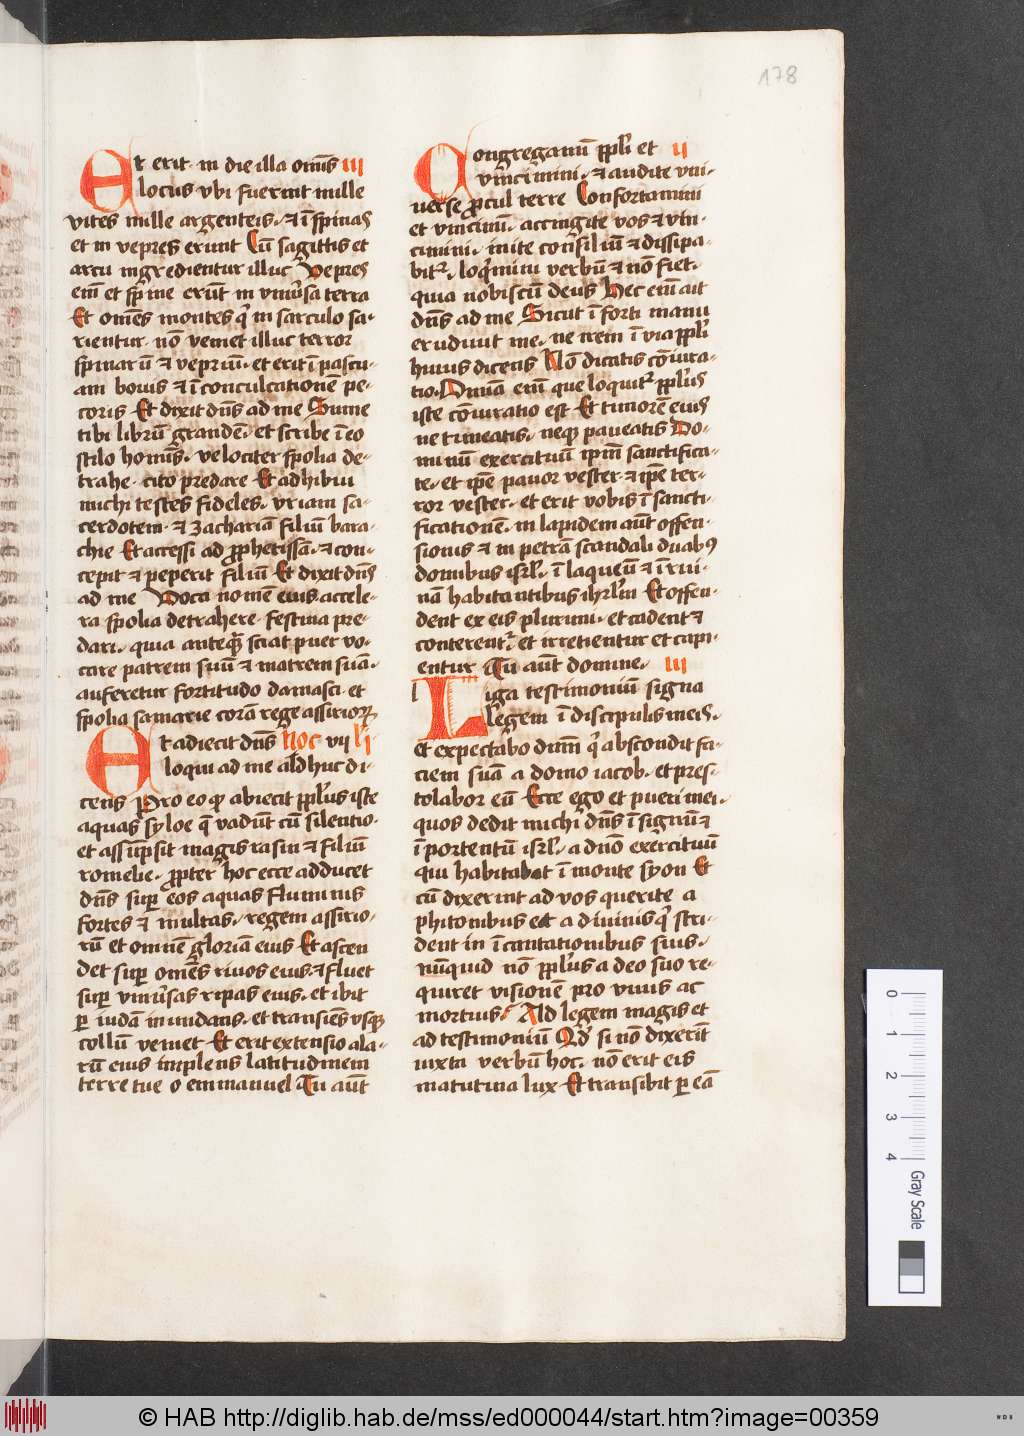 178
Et erit · in die illa om̄is iii
locus vbi fuerint mille
vites mille argenteis · et ī spinas
et in vepres erunt Cū sagittis et
arcu ingredientur illuc Vepres
em̄ et spīne erūt in vniūsa terra
Et om̄es montes qⁱ in sarculo sa-
rientur · nō veniet illuc terror
spinarū et vepriū · et erit ī pascu-
am bouis et ī conculcationē pe-
coris Et dixit dn̄s ad me Sume
tibi librū grandē · et scribe ī eo
stilo homīs · velociter spolia de-
trahe · cito predare Et adhibui
michi testes fideles · vriam sa-
cerdotem · et zachariā filiū bara-
chie Et accessi ad ꝓphetissā · et con-
cepit et peperit filiū Et dixit dn̄s
ad me Voca nomē eius · accele-
ra spolia detrahere · festina pre-
dari · quia anteqꝫ sciat puer vo-
care patrem suū et matrem suā ·
auferetur fortitudo damasci · et
spolia samarie corā rege assirioꝝ
Et adiecit dn̄s Noc vii l̄i
loqui ad me aldhuc di-
cens Pro eo qꝫ abiecit ppl̄us iste
aquas syloe q̄ vadūt cū silentio ·
et assūpsit · magis rasin et filiū
romelie · ꝓpter hoc ecce adducet
dn̄s suꝑ eos aquas fluminis
fortes et multas · regem assirio-
rū et omnē gloriā eius Et ascen
det suꝑ om̄es riuos eius · et fluet
suꝑ vniūsas ripas eius · et ibit
ꝑ iudā inundans · et transiēs vsqꝫ
collū veniet Et erit extensio ala-
rū eius implens latitudinem
terre tue o emmanuel Tu aūt
Congregamī ppl̄i et ii
vincimini · et audite vni-
uerse ꝓcul terre Confortamini
et vincimī · accingite vos et vin-
cimini · inite consiliū et dissipa-
bit᷑ · loqⁱmini verbū et nō fiet ·
quia nobiscū deus Hec em̄ ait
dn̄s ad me Sicut ī forti manu
erudiuit me · ne irem ī via ppl̄i
huius dicens Nō dicatis cōiura-
tio · Omīa em̄ que loquit᷑ ppl̄us
iste cōiuratio est Et timorē eius
ne timeatis · neqꝫ paueatis Do-
minū exercituū ipm̄ sanctifica-
te · et ip̄e pauor vester · et ip̄e ter-
ror vester · et erit vobis ī sancti-
ficationē · in lapidem aūt offen-
sionis et in petrā scandali duabꝰ
domibus isrl̄ · ī laqueū et ī rui-
nā habitantibus ihrl̄m Et offen-
dent ex eis plurimi · et cadent et
conterent᷑ et irretientur et capi-
entur Tu aūt domine · iii
Liga testimoniū signa
legem ī discipulis meis ·
et expectabo dūm qⁱ abscondit fa-
ciem suā a domo iacob · et pres-
tolabor eū Ecce ego et pueri mei ·
quos dedit michi dn̄s ī signū et
ī portentū isrl̄ · a dn̄o exercituū
qui habitabat ī monte syon Et
cū dixerint ad vos querite a
phitonibus est a diuinis qⁱ stri-
dent in īcantationibus suis ·
nūquid nō ppl̄us a deo suo re-
quiret visionē pro viuis ac
mortuis · Ald legem magis et
ad testimoniū Qd̄ si nō dixerīt
iuxta verbū hoc · nō erit eis
matutina lux Et transibit ꝑ eā
0 1 2 3 4
Gray Scale
© HAB http://diglib.hab.de/mss/ed000044/start.htm?image=00359